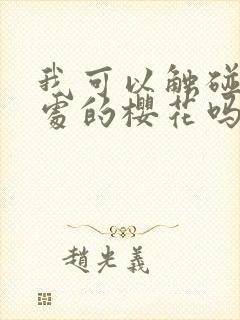 我可以触碰
处的樱花吗
趙光義